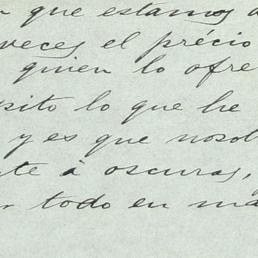 que estamos
veces el précio
quien lo ofre
sito lo que he
y es que nosot
te à oscuras,
r todo en ma